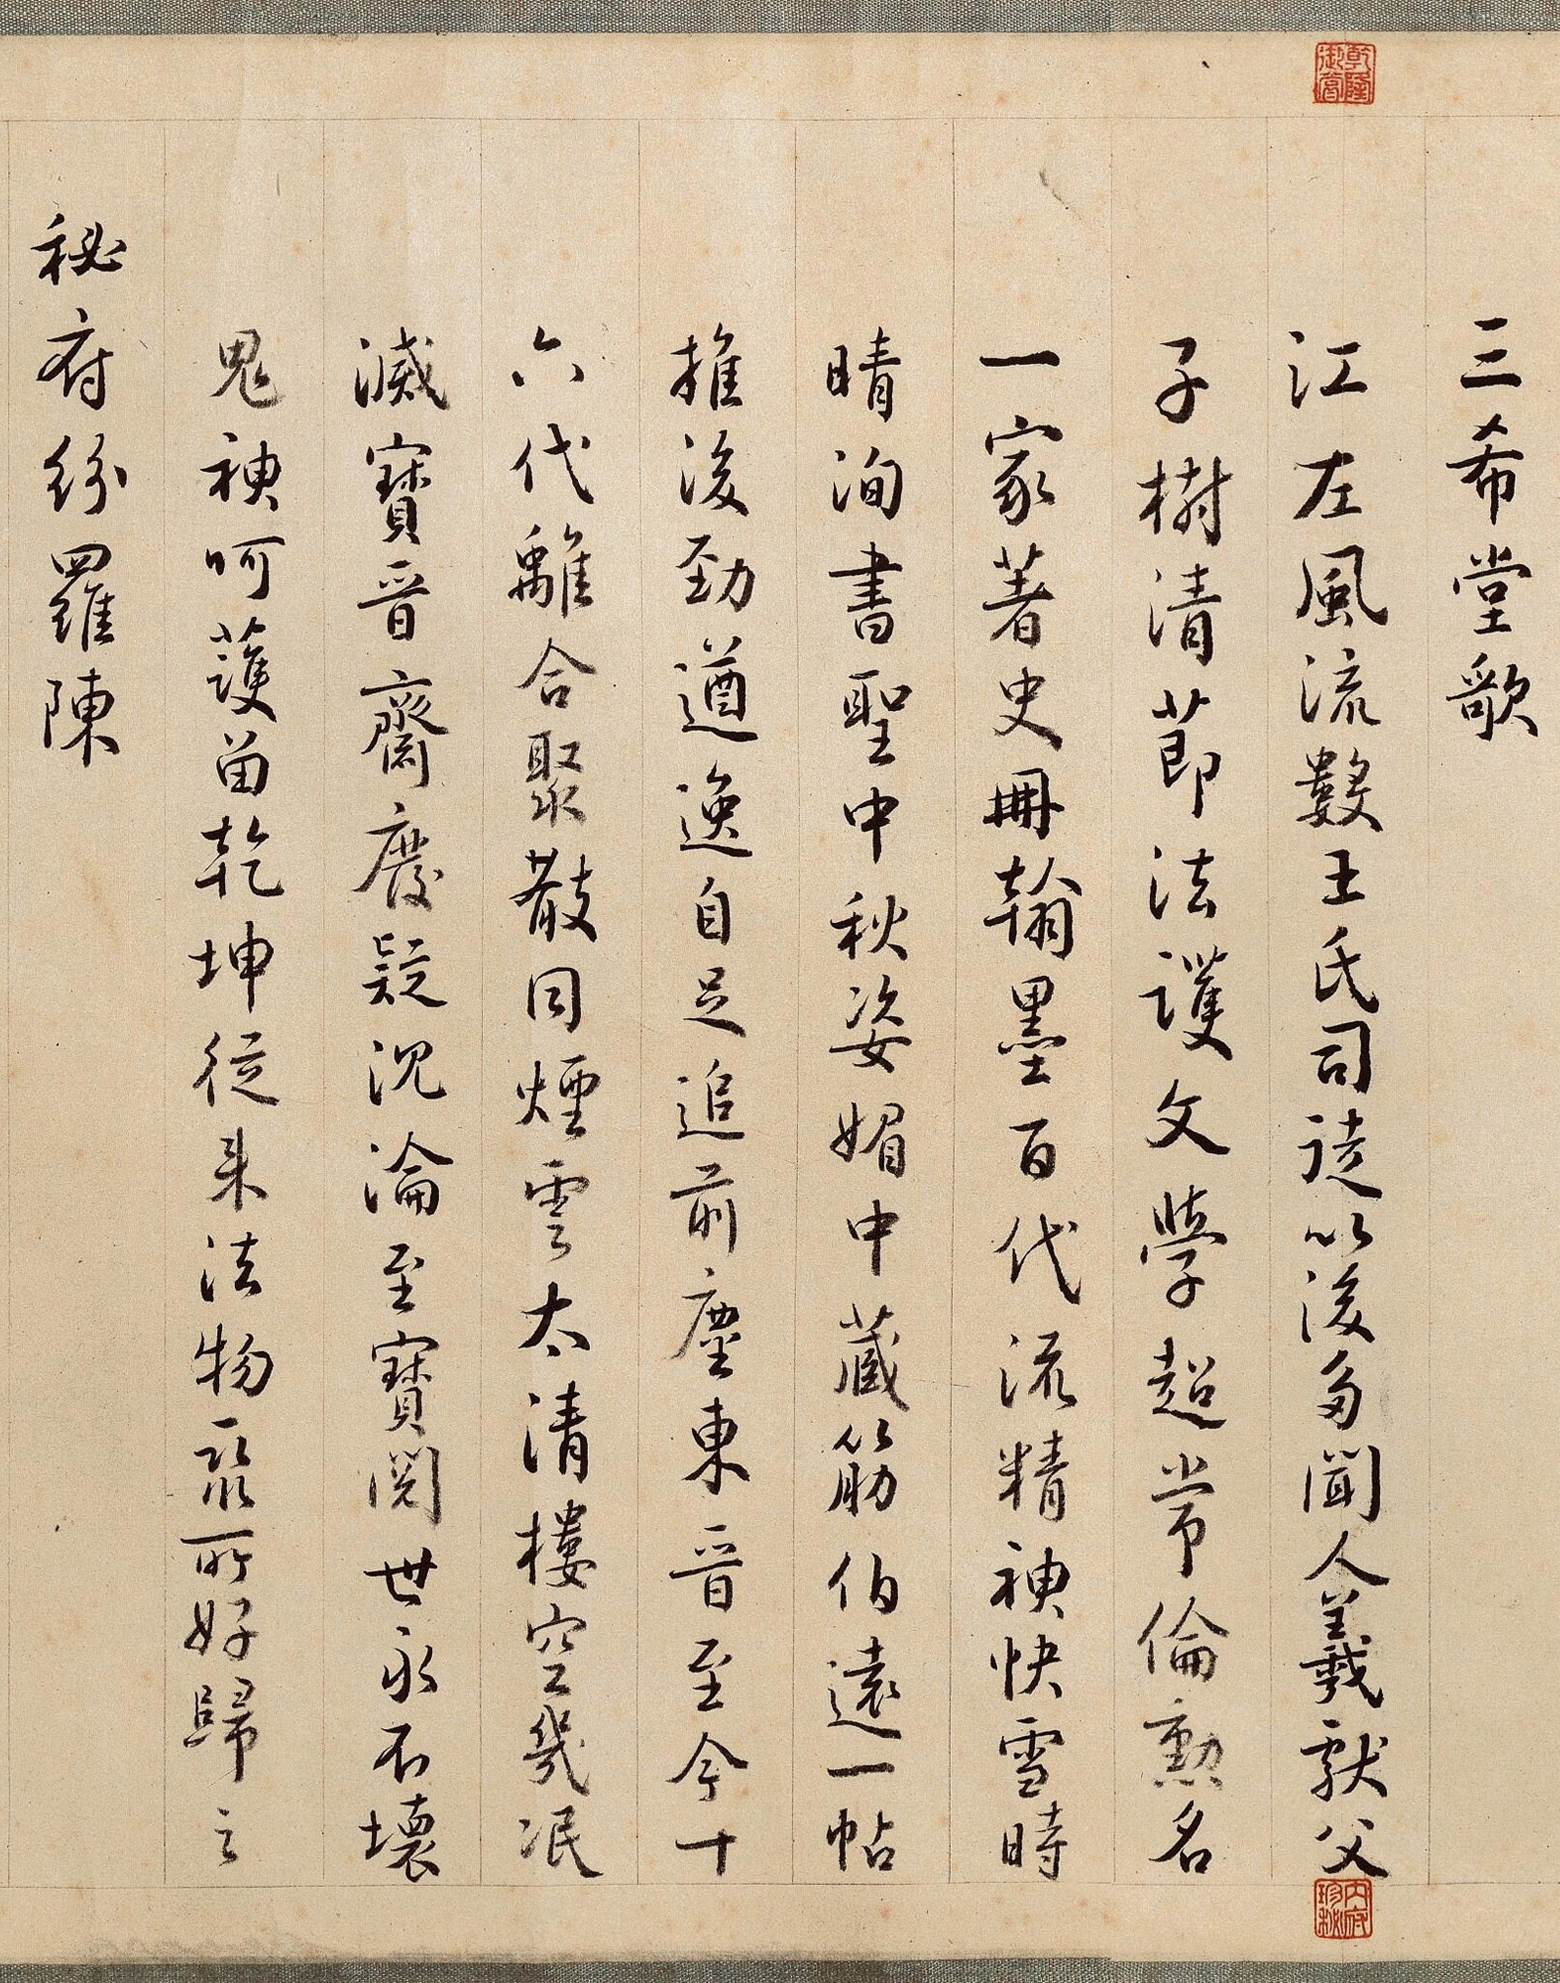 三希堂歌
乾隆御賞
江左風流數王氏司徒以後多聞人羲獻父
內府珍秘
子樹清節法護文學超常倫勳名
一家著史冊翰墨百代流精神快雪時
晴洵書聖中秋姿媚中藏筋伯遠一帖
推後勁遒逸自足追前塵東晉至今十
六代離合聚散同煙雲太清樓空幾泯
滅寶晉齋廢疑沉淪至寶閱世永不壞
鬼神呵護留乾坤從来法物聚所好歸之
秘府紛羅陳